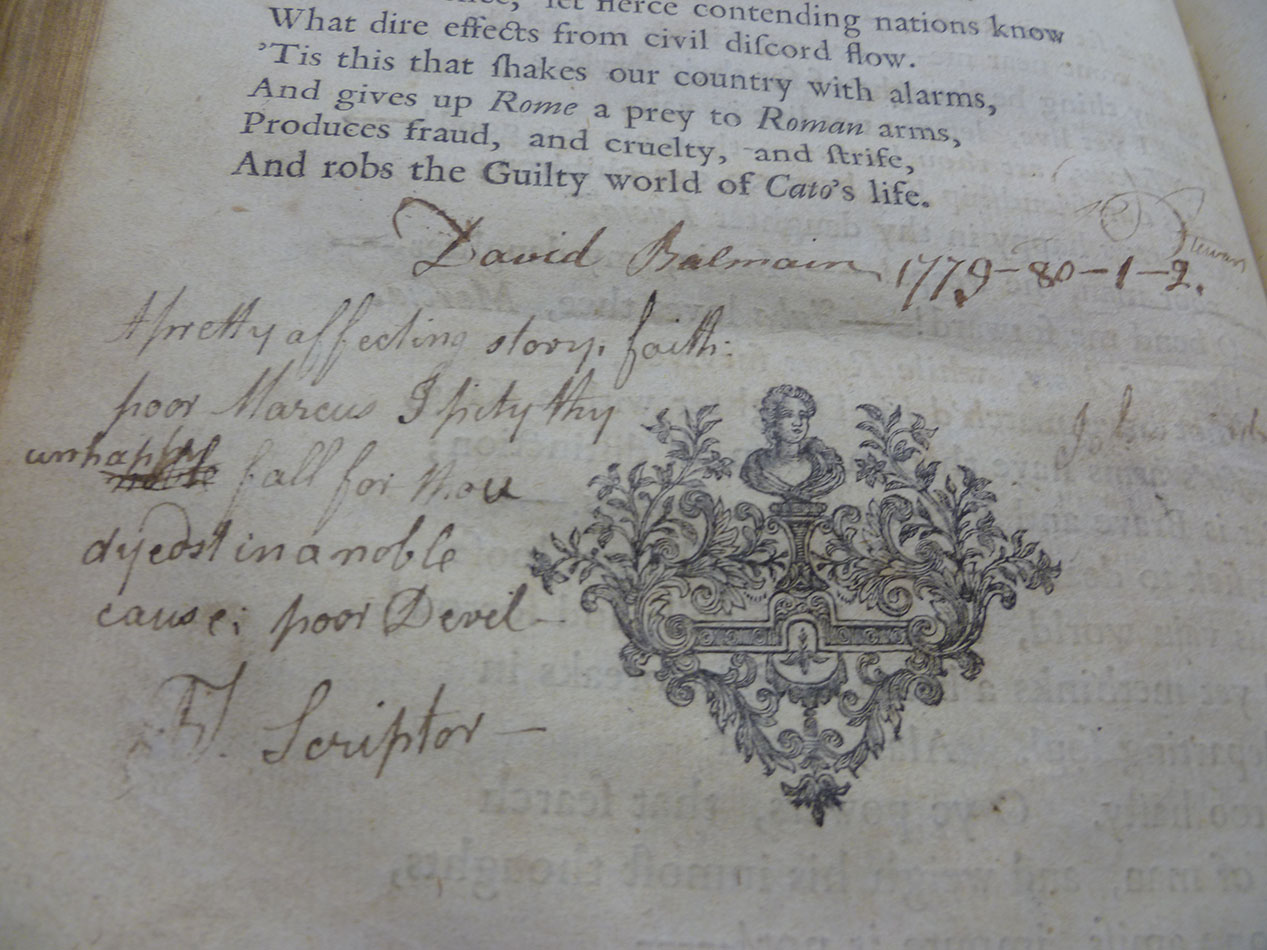 let fierce contending nations know
What dire effects from civil diſcord flow.
'Tis this that ſhakes our country with alarms,
And gives up Rome a prey to Roman arms,
Produces fraud, and cruelty, and ſtrife,
And robs the Guilty world of Cato's life.
David Balmain 1779-80-1-2.
A pretty affecting story, faith:
poor Marcus I pity thy
unhappy fall for thou
dyedst in a noble
cause; poor Devil —
Scriptor —